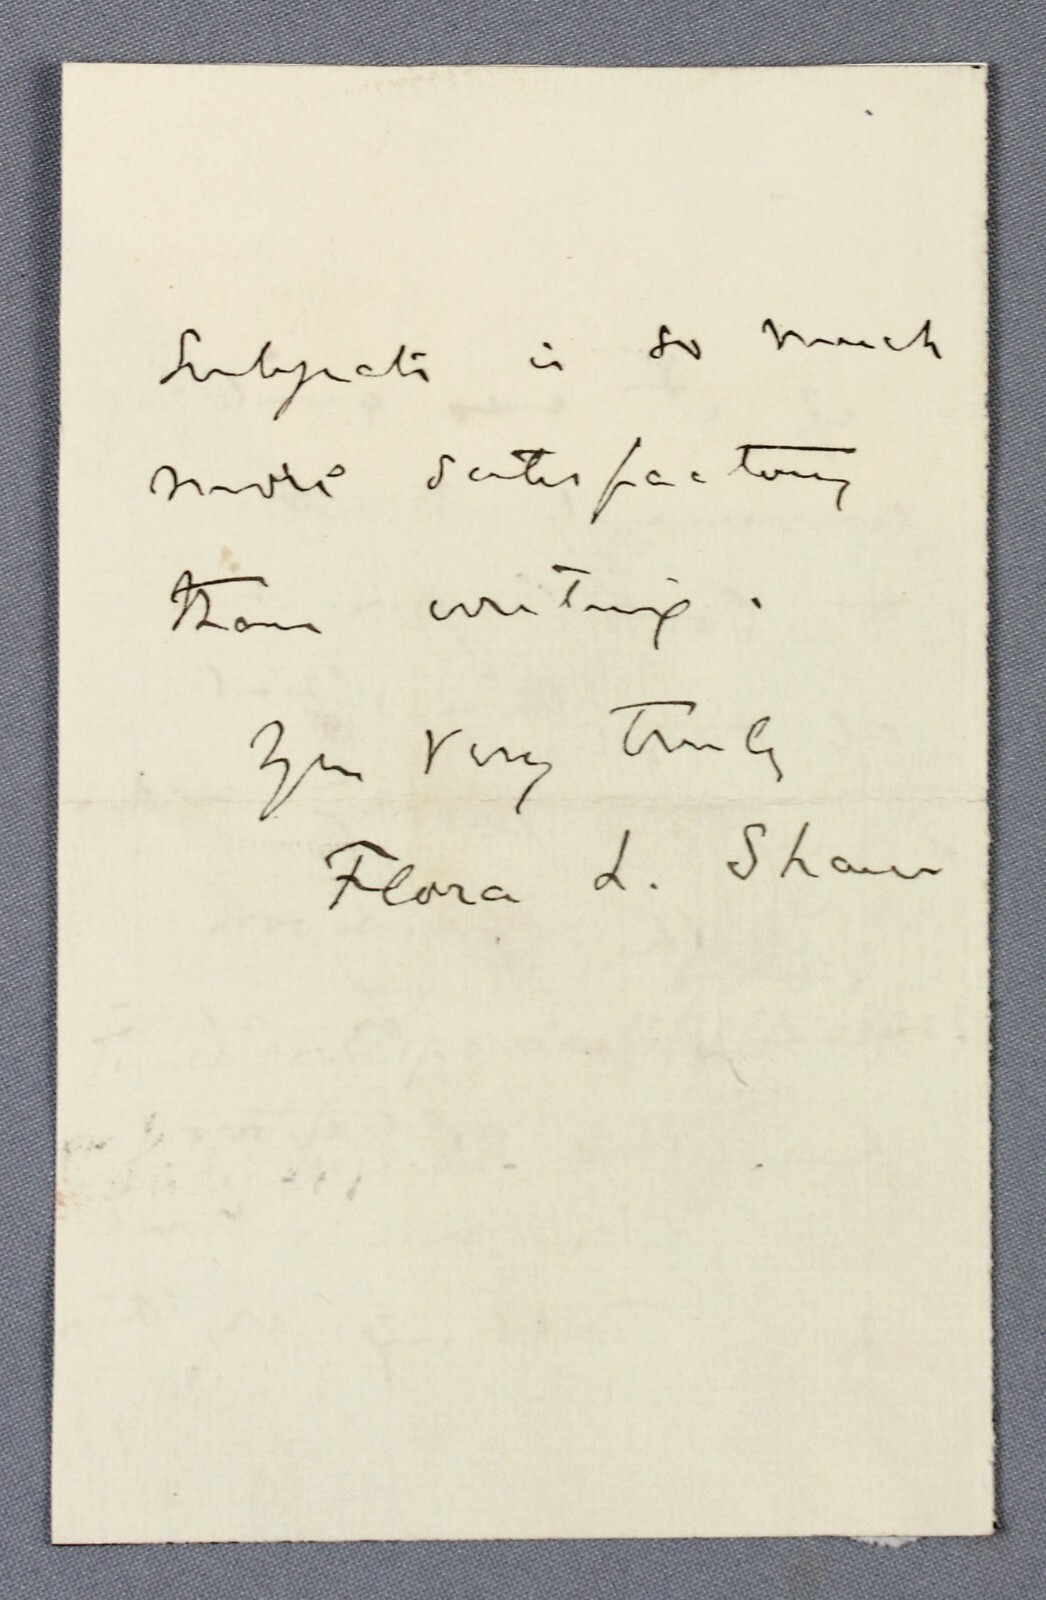 Subjects is so much
more satisfactory
than writing.
Yrs very truly
Flora L. Shaw